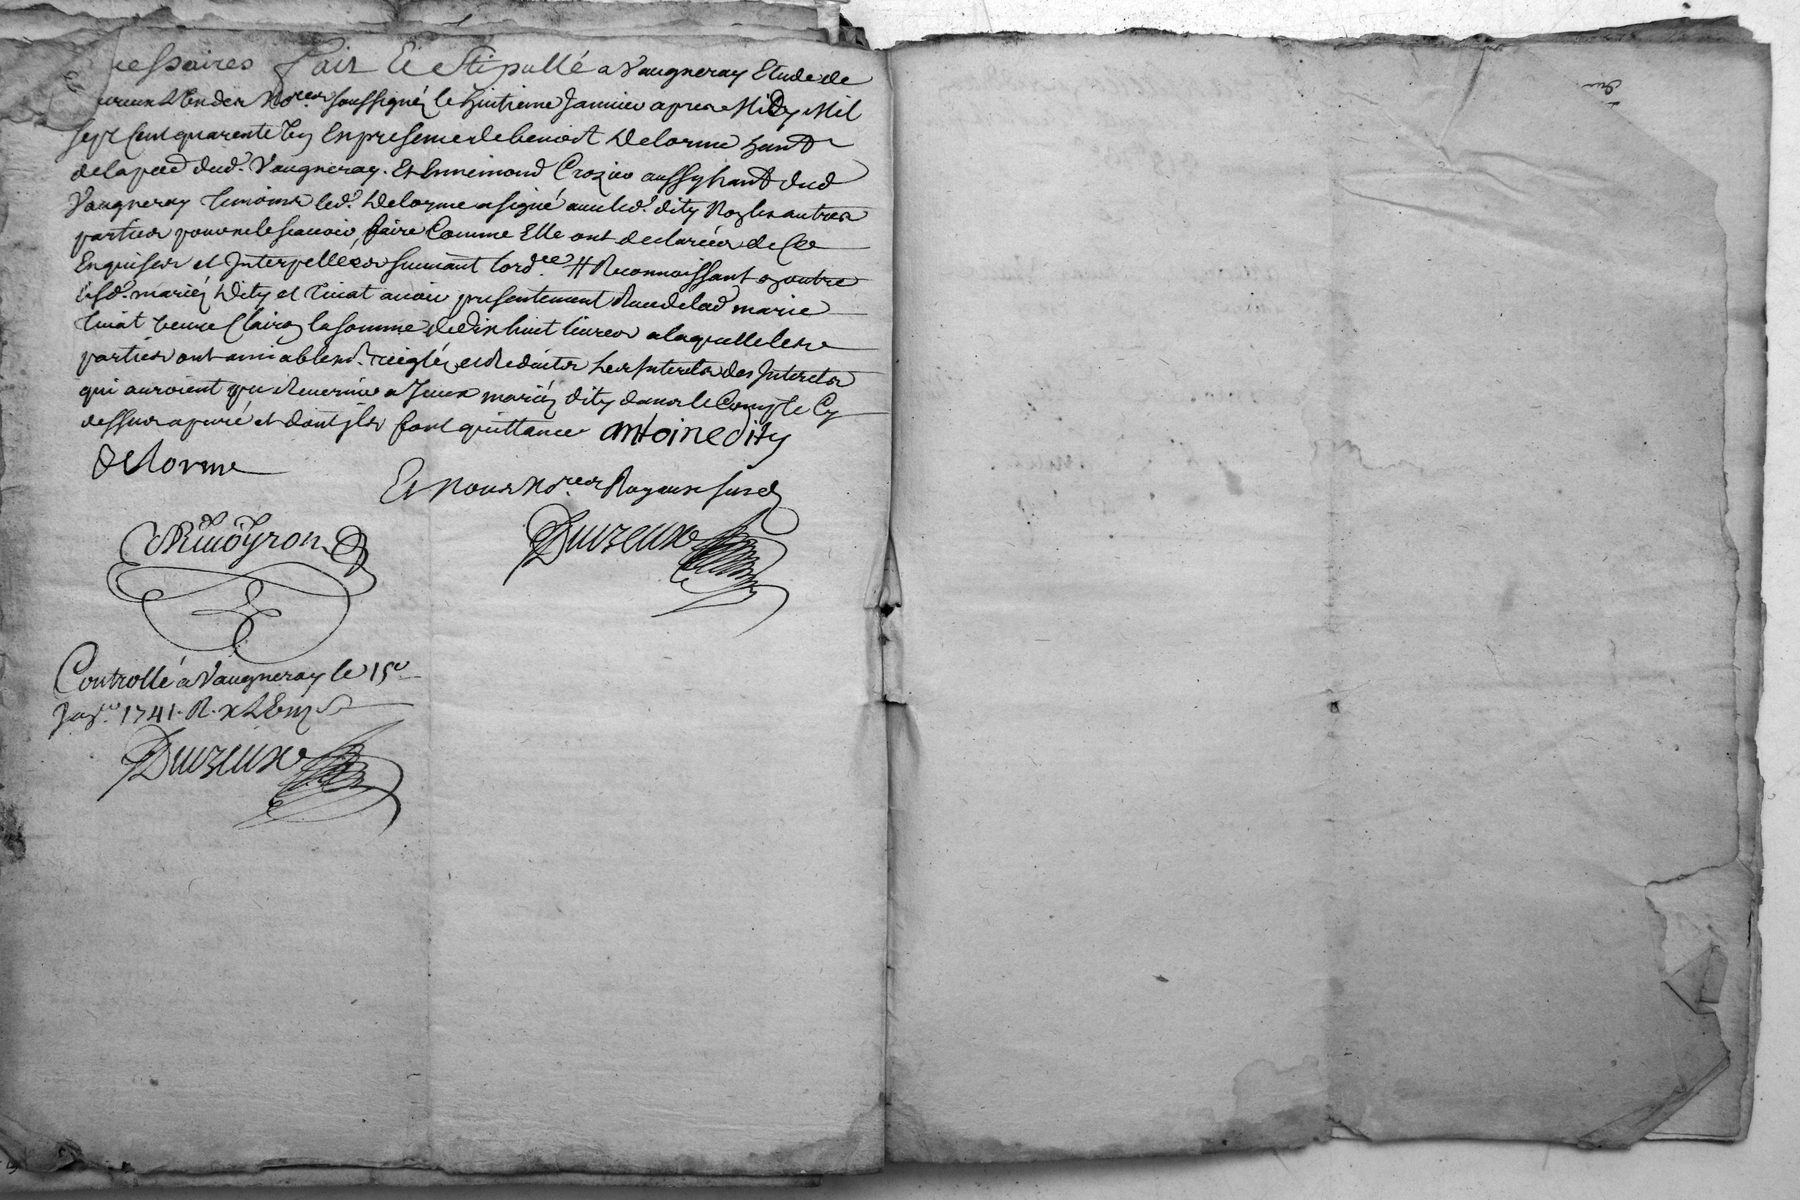 cessaires Fait Et Stipullé a Vaugneray Etude de
L'un des No.res soussignéz le huitieme Janvier apres Midy Mil
sept Cent quarente un En presence de benoist Delorme habt
de la par dud. Vaugneray. Et Ennemond Crozier aussy habt dud
Vaugneray temoins led. Delorme a signé avec led. dity Non les autres
parties pour ne le scavoir faire Comme Elle ont declarées de Ce
Enquises et Interpellées suivant lord.ce # Reconnoissant en outre
lesd. mariéz Dity et tinat avoir presentement Receu de lad marie
tinat veuve Clairoz la somme de dix huit livres a laquelle les
parties ont amiablem.t reigléz et Reduites Les Interets des Interets
qui auroient pu Revenir a Iceux mariéz dity dans le Compte Cy
dessus apuré et dont ils font quittance antoine dity
Delorme
Et Nous No.res Royaux susd
Duvzeux
Controllé a Vaugneray le 15e
Janv.er 1741. R.
Duvzeux